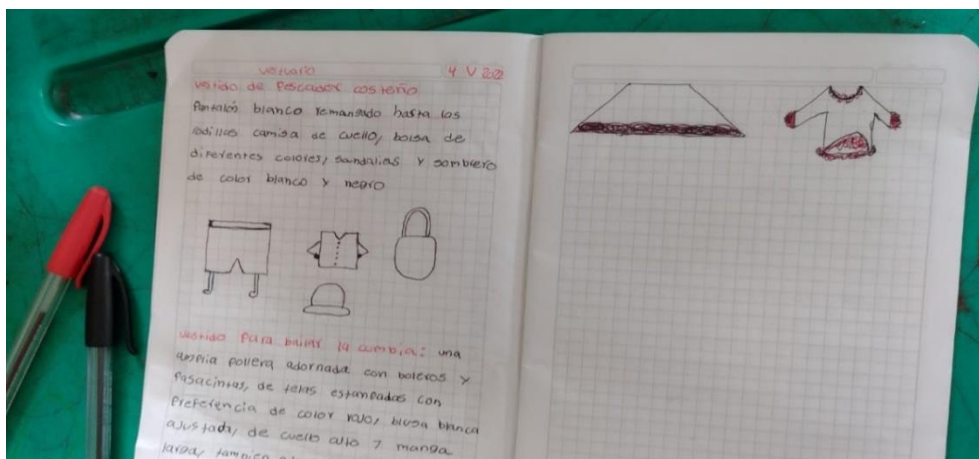 vestuario 4 V 2022
vestido de Pescador costeño
Pantalón blanco remangado hasta las
rodillas camisa de cuello, bolsa de
diferentes colores, sandalias y sombrero
de color blanco y negro
vestido Para bailar la cumbia: una
amplia pollera adornada con boleros y
Pasacintas, de telas estampadas con
Preferencia de color rojo, blusa blanca
ajustada, de cuello alto y manga
larga, también